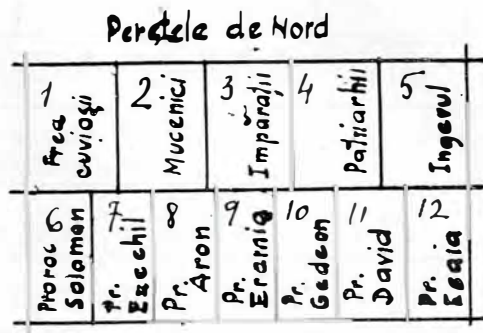 Peretele de Nord
1 Prea cuvioşii
2 Mucenici
3 Împăraţii
4 Patriarhii
5 Îngerul
6 Proroc Solomon
7 Pr. Ezechil
8 Pr. Aron
9 Pr. Eramia
10 Pr. Gedeon
11 Pr. David
12 Pr. Esaia